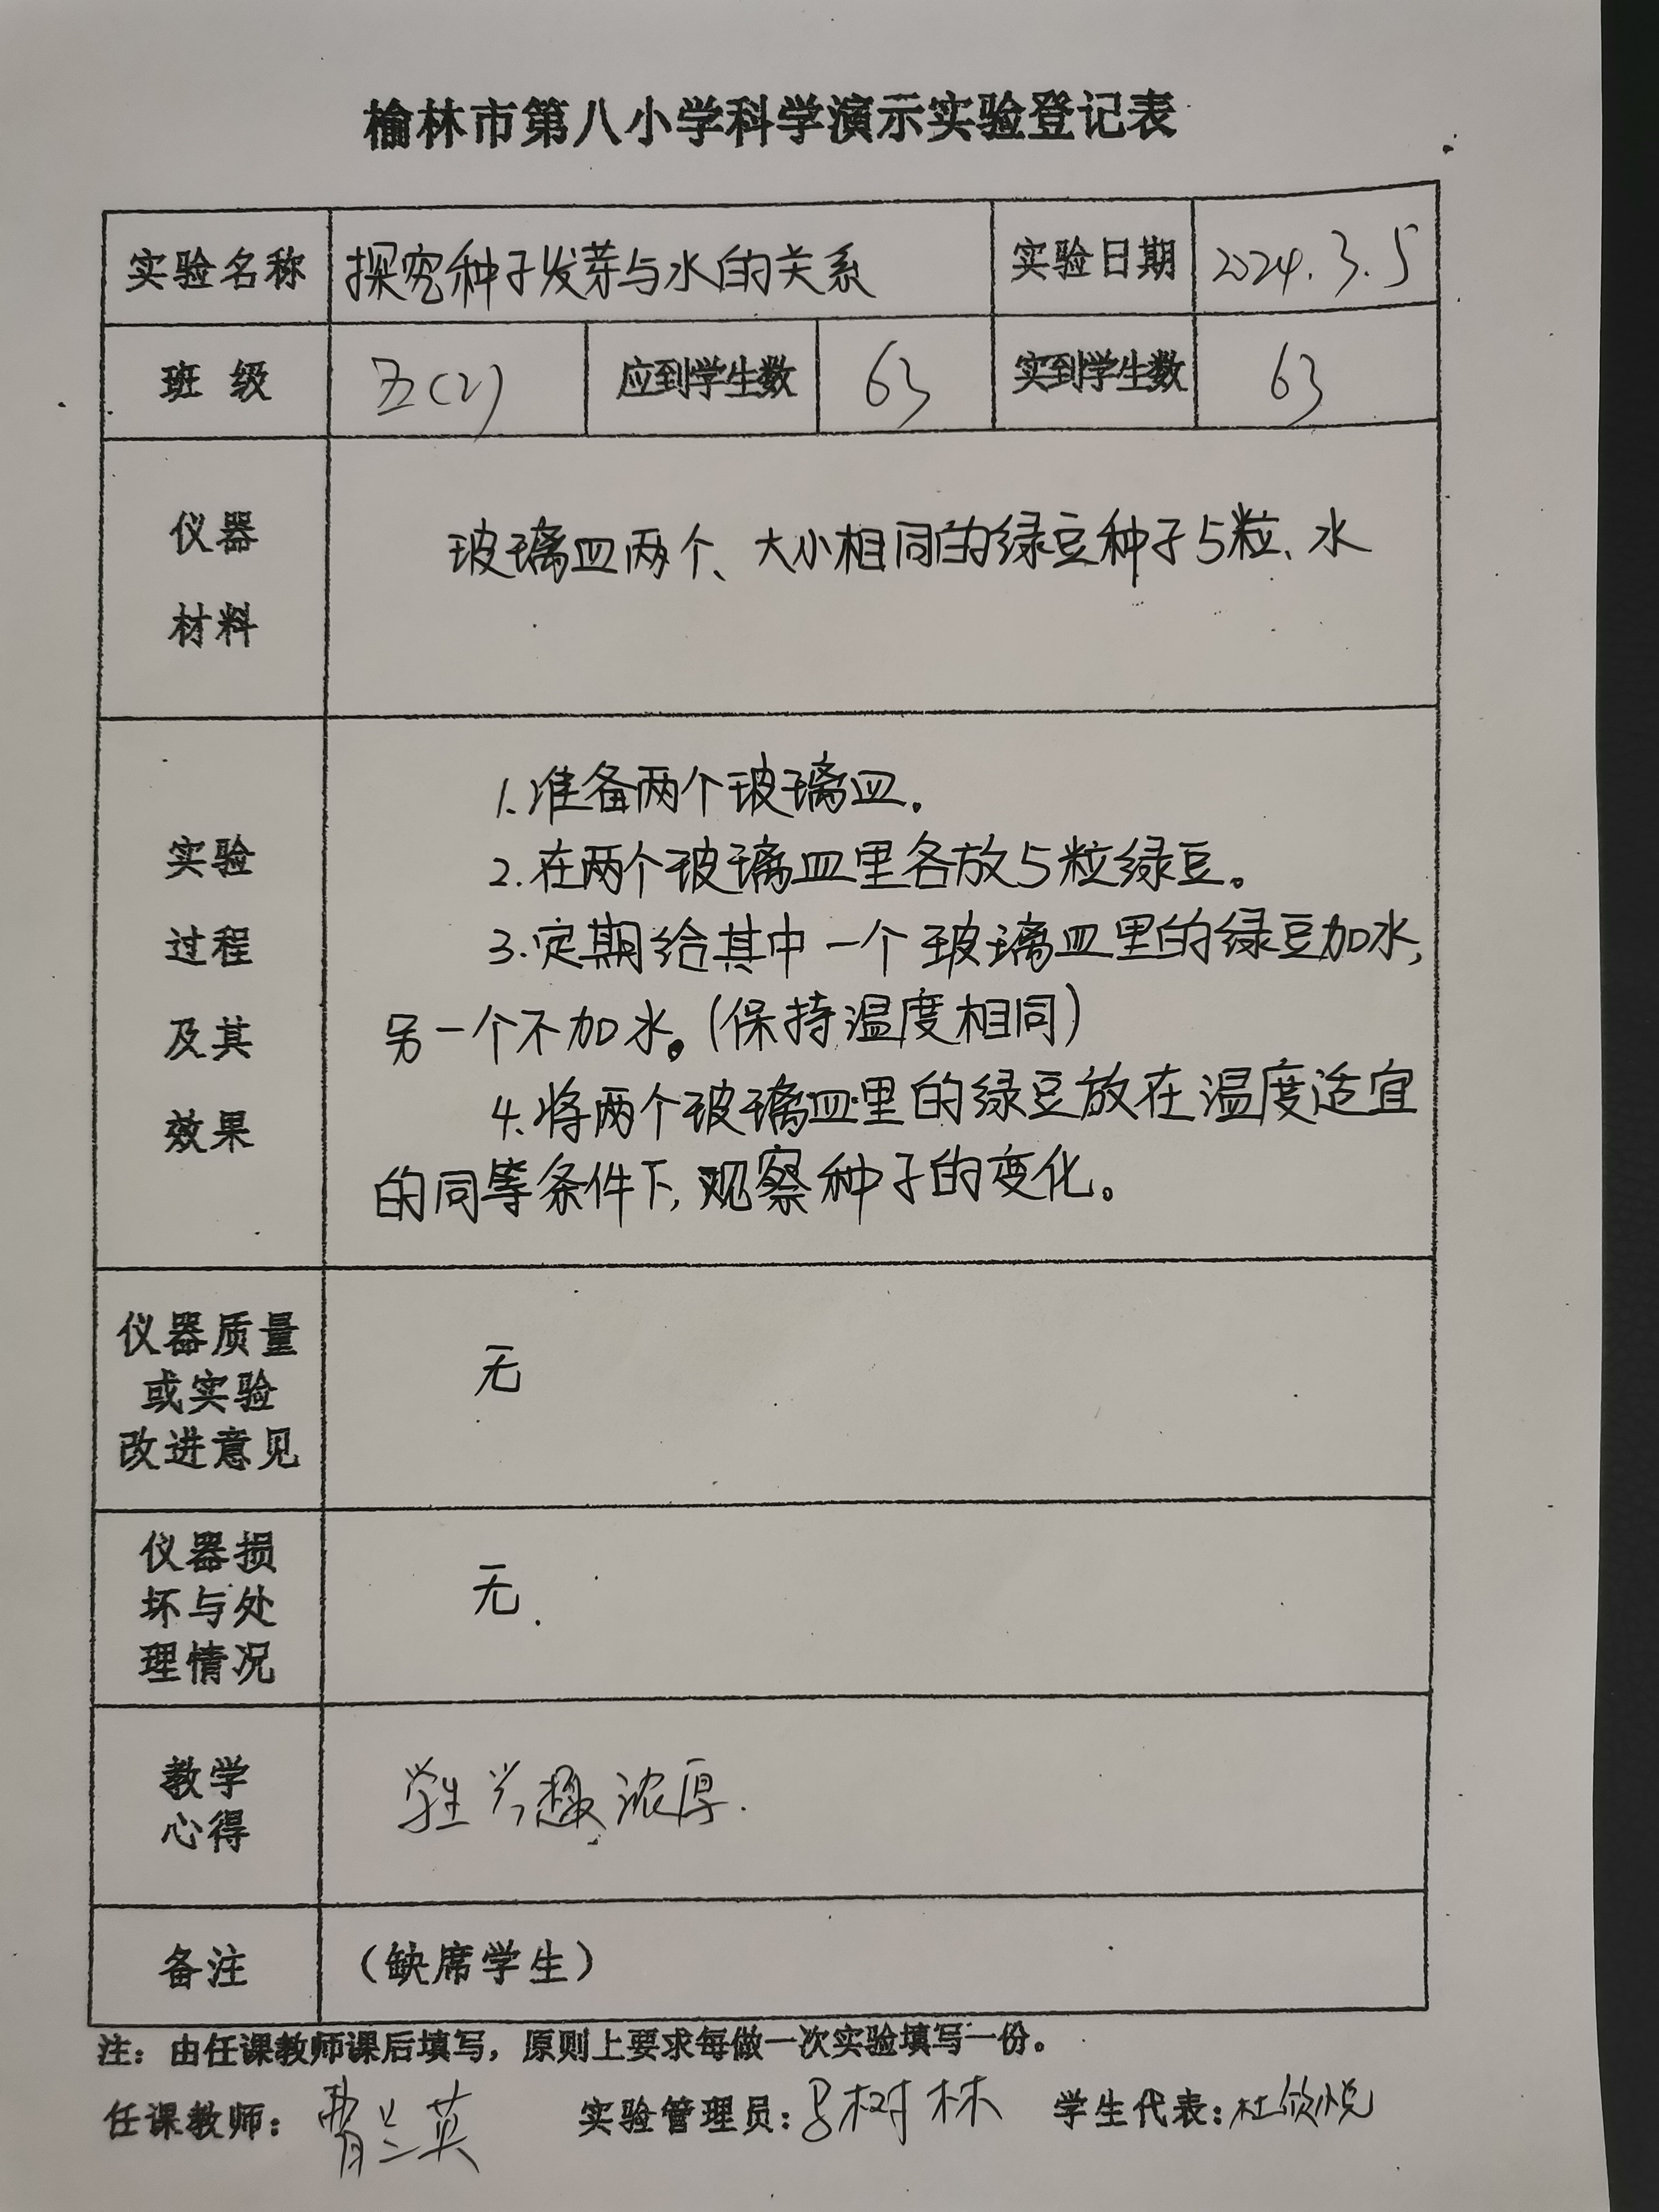 榆林市第八小学科学演示实验登记表
实验名称 探究种子发芽与水的关系 实验日期 2024.3.5
班 级 五(2) 应到学生数 63 实到学生数 63
仪器
材料
玻璃皿两个、大小相同的绿豆种子5粒、水
实验
过程
及其
效果
1.准备两个玻璃皿。
2.在两个玻璃皿里各放5粒绿豆。
3.定期给其中一个玻璃皿里的绿豆加水,
另一个不加水。(保持温度相同)
4.将两个玻璃皿里的绿豆放在温度适宜
的同等条件下,观察种子的变化。
仪器质量
或实验
改进意见
无
仪器损
坏与处
理情况
无.
教学
心得
学生兴趣浓厚.
备注 (缺席学生)
注:由任课教师课后填写,原则上要求每做一次实验填写一份。
任课教师: 曹兰英 实验管理员: 吕树林 学生代表: 杜欣悦